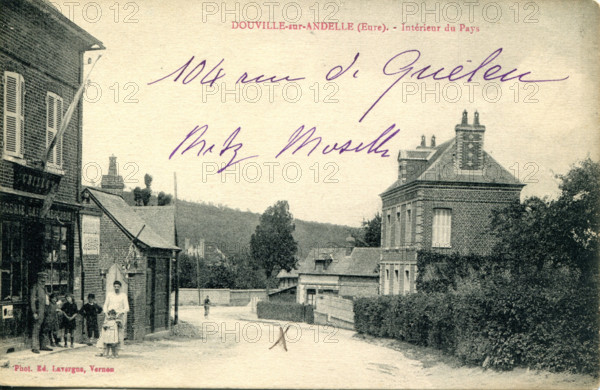 DOUVILLE-sur-ANDELLE (Eure). - Intérieur du Pays
104 rue di Quélen
Metz Moselle
Phot. Ed. Lavergne, Vernon